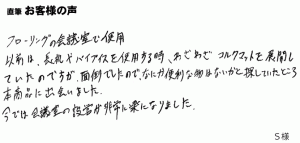 直筆 お客様の声
フローリングの会議室で使用
以前は、長机やパイプイスを使用する時、わざわざコルクマットを展開し
ていたのですが、面倒でしたので、なにか便利な物はないかと探していたところ
本商品に出会いました。
今では会議室の設営が非常に楽になりました。
S様